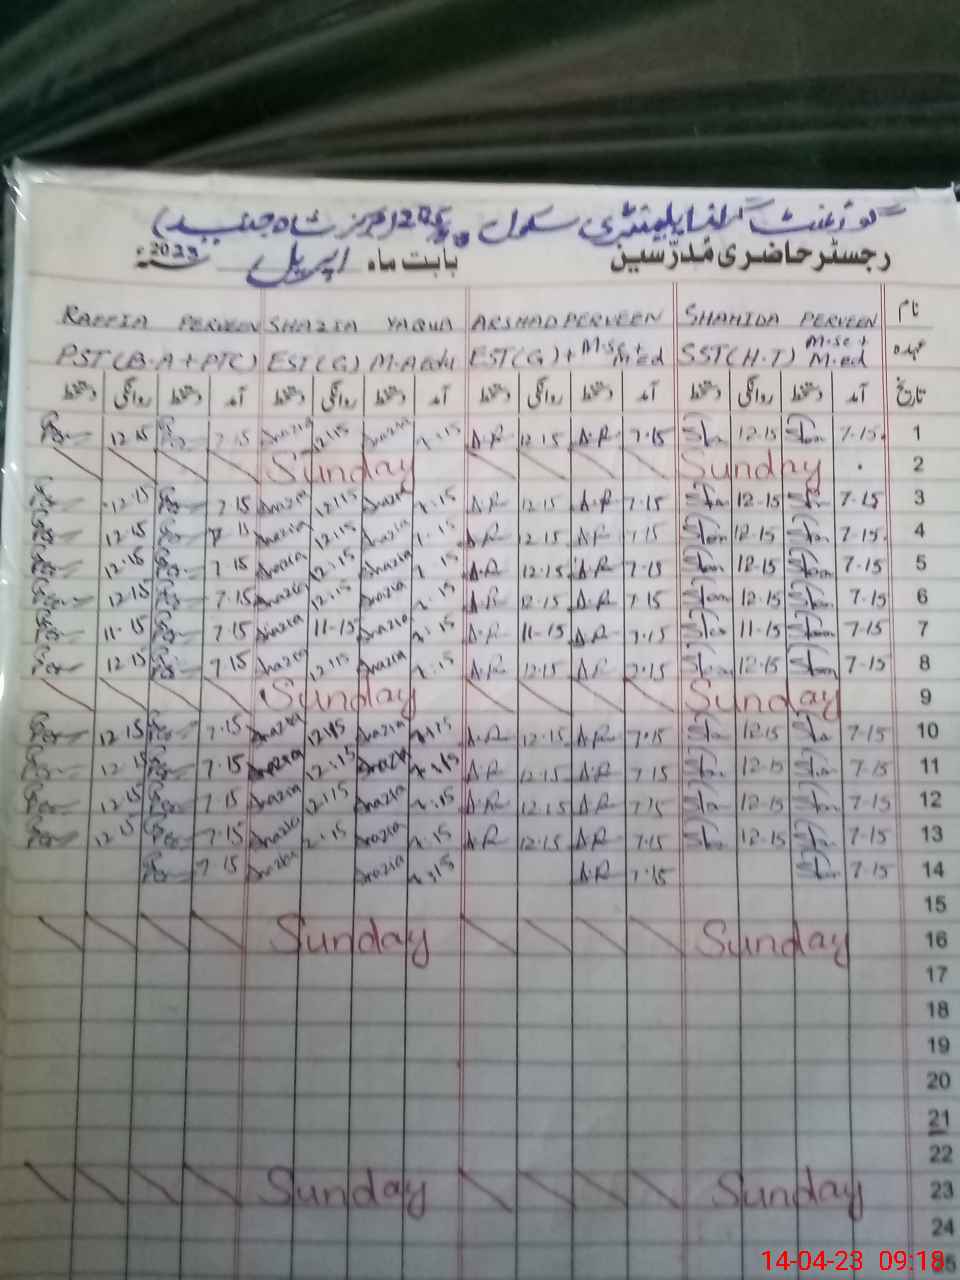 گورنمنٹ گرلز ایلیمنٹری سکول
رجسٹر حاضری مُدرّسین بابت ماہ اپریل 2023
نام SHAHIDA PERVEEN ARSHAD PERVEEN SHAZIA YAQUB RAFFIA PERVEEN
عہدہ SST(H.T) M.sc + M.ed EST(G) + M.Sc + M.ed EST(G) M.A edu PST(B.A + PTC)
تاریخ آمد دستخط روانگی دستخط آمد دستخط روانگی دستخط آمد دستخط روانگی دستخط آمد دستخط روانگی دستخط
1 7-15 12-15 7.15 A.R 12.15 A.R 7.15 Shazia 12.15 Shazia 7.15 12.15
2 Sunday Sunday
3 7-15 12-15 7.15 A.R 12.15 A.R 7.15 Shazia 12.15 Shazia 7.15 12.15
4 7-15 12-15 7.15 A.R 12.15 A.R 7.15 Shazia 12.15 Shazia 7.15 12.15
5 7-15 12-15 7.15 A.R 12.15 A.R 7.15 Shazia 12.15 Shazia 7.15 12.15
6 7-15 12-15 7.15 A.R 12.15 A.R 7.15 Shazia 12.15 Shazia 7.15 12.15
7 7-15 11-15 7.15 A.R 11-15 A.R 7.15 Shazia 11-15 Shazia 7.15 11-15
8 7-15 12-15 7.15 A.R 12.15 A.R 7.15 Shazia 12.15 Shazia 7.15 12.15
9 Sunday Sunday
10 7-15 12-15 7.15 A.R 12.15 A.R 7.15 Shazia 12.15 Shazia 7.15 12.15
11 7-15 12-15 7.15 A.R 12.15 A.R 7.15 Shazia 12.15 Shazia 7.15 12.15
12 7-15 12-15 7.15 A.R 12.15 A.R 7.15 Shazia 12.15 Shazia 7.15 12.15
13 7-15 12-15 7.15 A.R 12.15 A.R 7.15 Shazia 2.15 Shazia 7.15 12.15
14 7-15 7.15 A.R 7.15 Shazia Shazia 7.15
15
16 Sunday Sunday
17
18
19
20
21
22
23 Sunday Sunday
24
14-04-23 09:18